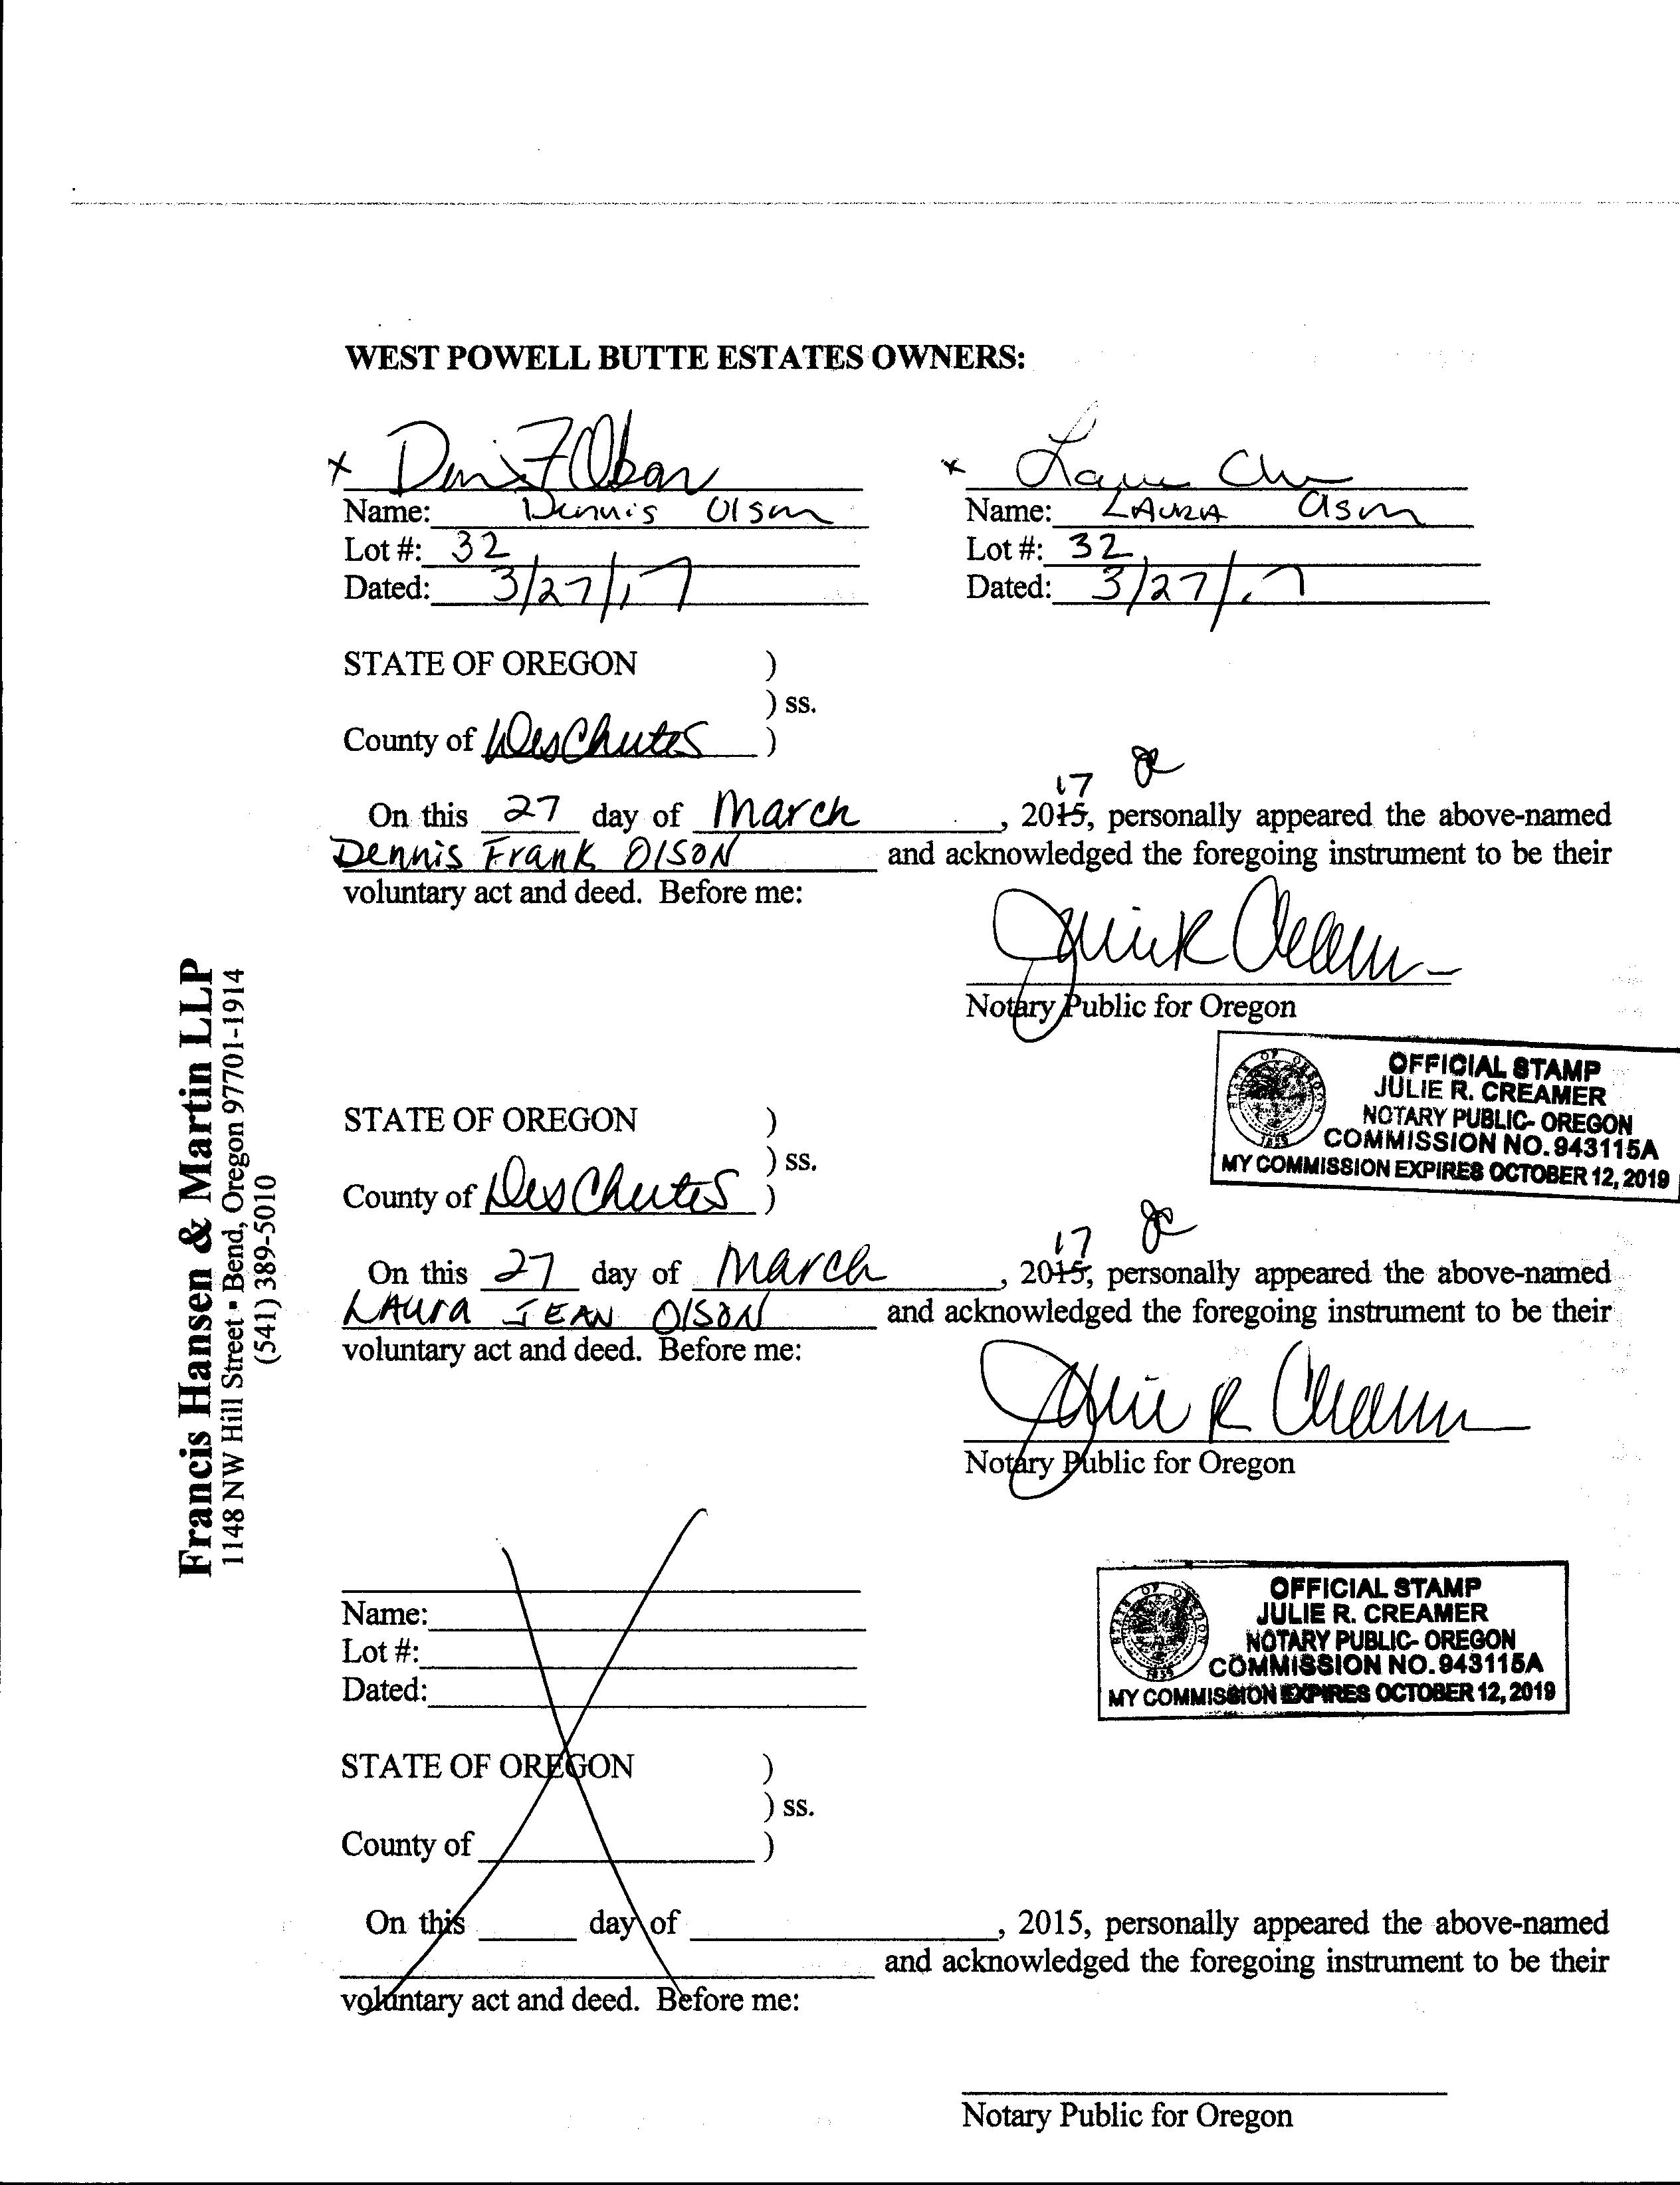 WEST POWELL BUTTE ESTATES OWNERS:
x x
Name: Dennis Olson Name: LAURA Olson
Lot #: 32 Lot #: 32
Dated: 3/27/17 Dated: 3/27/17
STATE OF OREGON )
) ss.
County of Deschutes )
17 JC
On this 27 day of March , 2015, personally appeared the above-named
Dennis Frank Olson and acknowledged the foregoing instrument to be their
voluntary act and deed. Before me:
Julie R Creamer
Notary Public for Oregon
OFFICIAL STAMP
JULIE R. CREAMER
NOTARY PUBLIC- OREGON
COMMISSION NO. 943115A
MY COMMISSION EXPIRES OCTOBER 12, 2019
STATE OF OREGON
1859
STATE OF OREGON )
) ss.
County of Deschutes )
17 JC
On this 27 day of March , 2015, personally appeared the above-named
LAura JEAN OlsoN and acknowledged the foregoing instrument to be their
voluntary act and deed. Before me:
Julie R Creamer
Notary Public for Oregon
OFFICIAL STAMP
JULIE R. CREAMER
NOTARY PUBLIC- OREGON
COMMISSION NO. 943115A
MY COMMISSION EXPIRES OCTOBER 12, 2019
STATE OF OREGON
1859
Name:
Lot #:
Dated:
STATE OF OREGON )
) ss.
County of )
On this day of , 2015, personally appeared the above-named
and acknowledged the foregoing instrument to be their
voluntary act and deed. Before me:
Notary Public for Oregon
Francis Hansen & Martin LLP
1148 NW Hill Street ▪ Bend, Oregon 97701-1914
(541) 389-5010